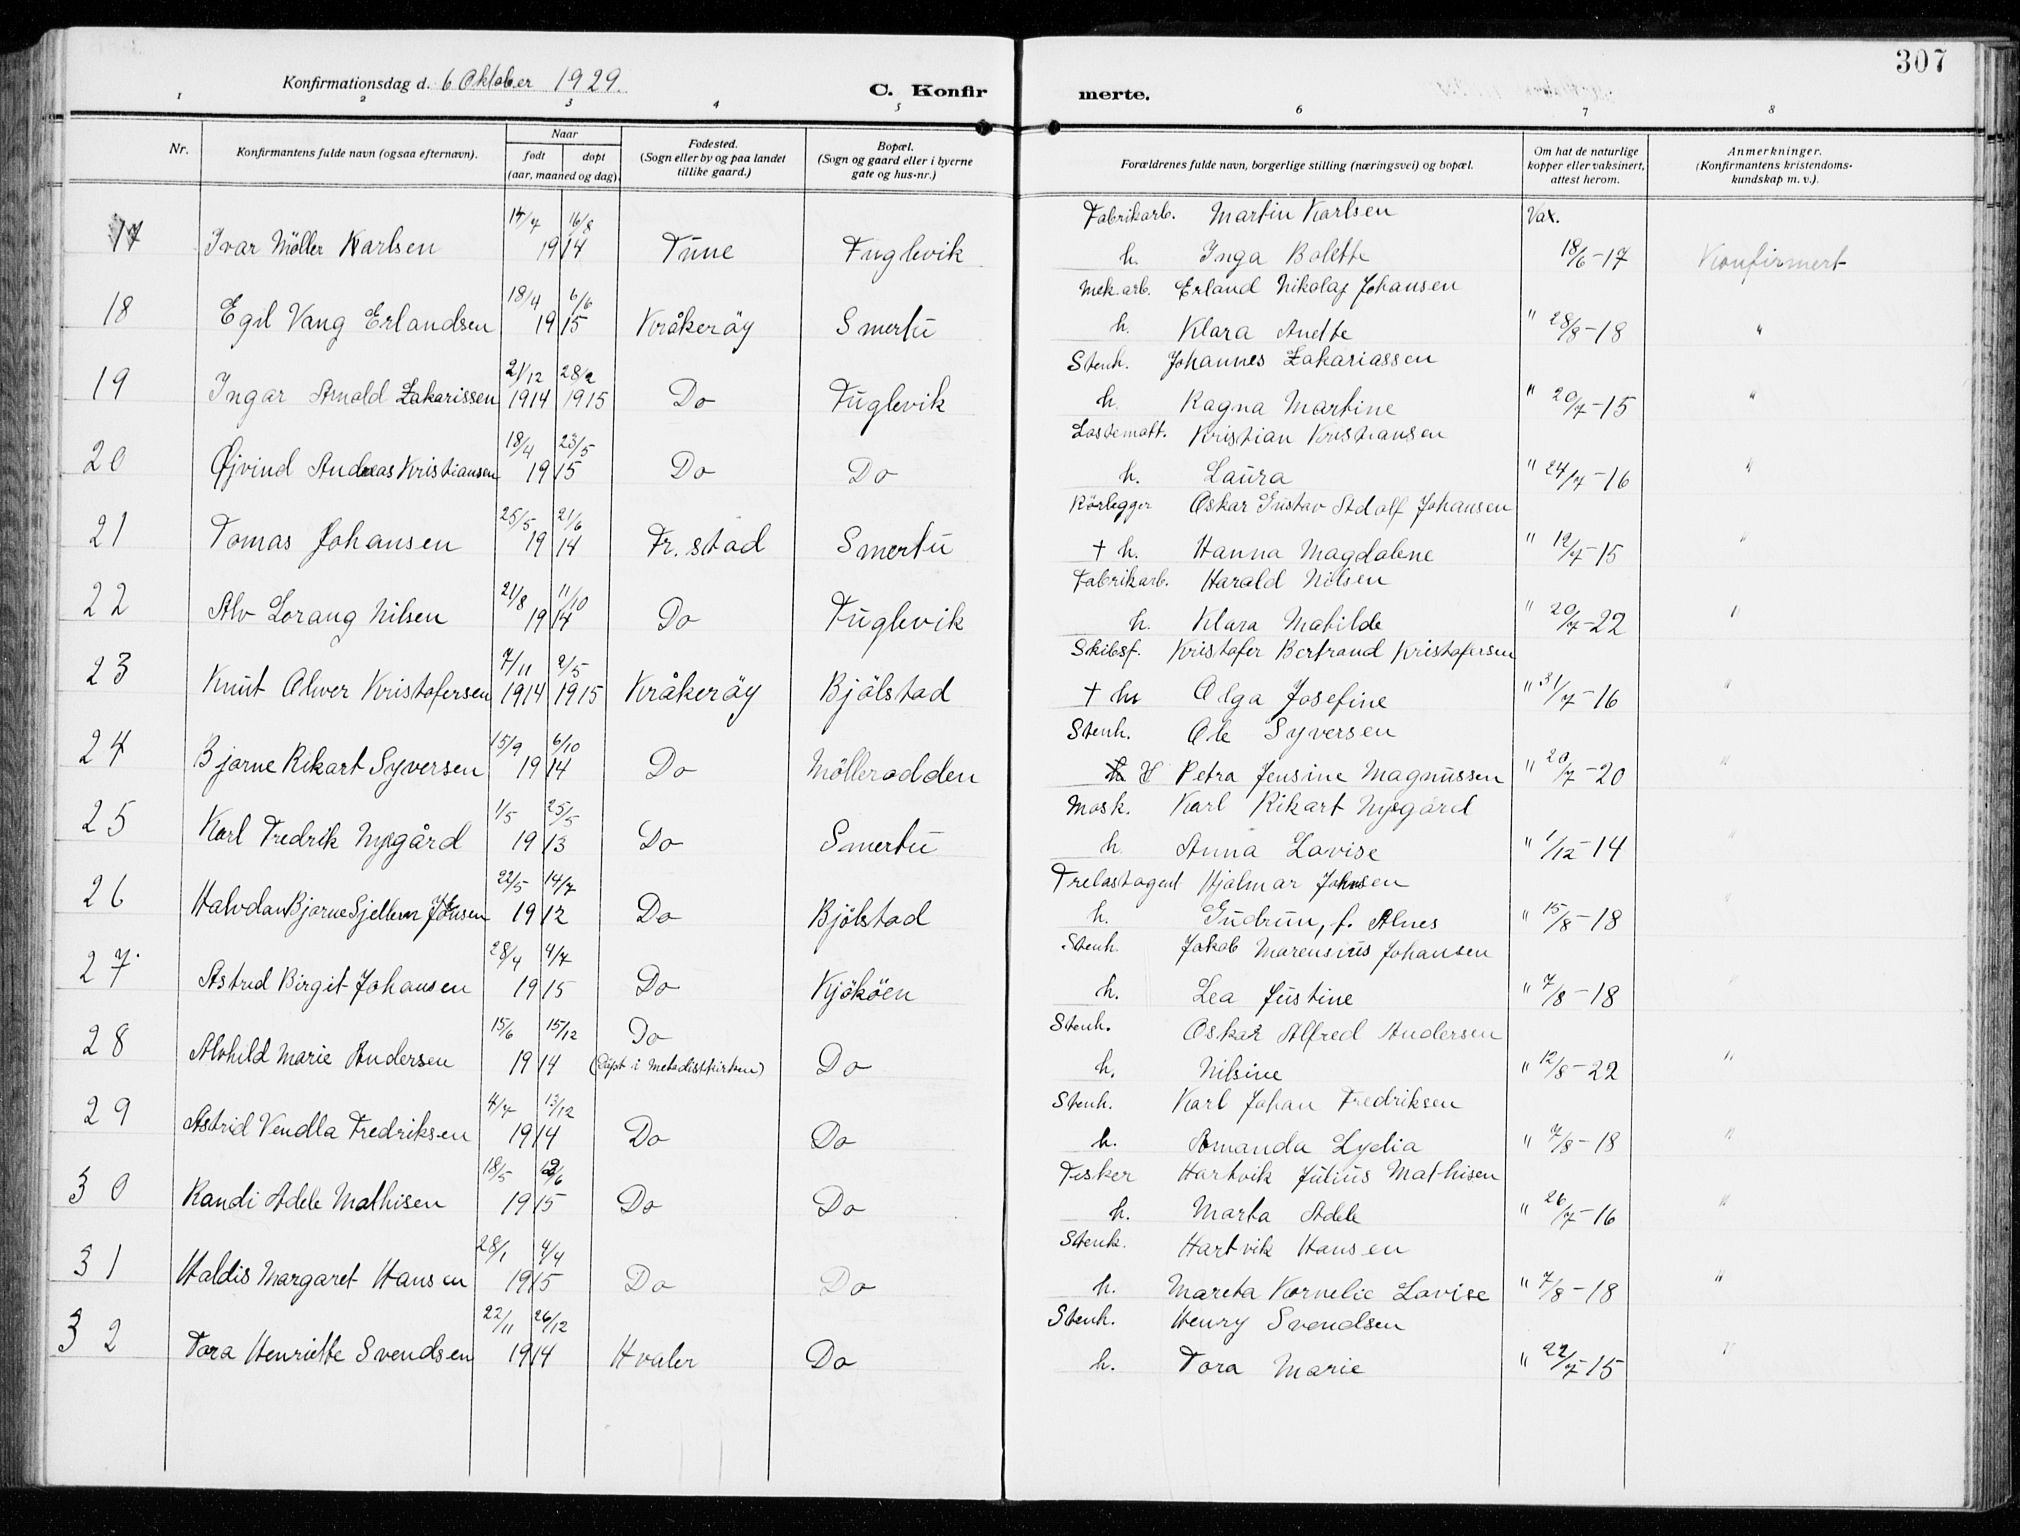 307
Konfirmationsdag d. 6 Oktober 1929.
C. Konfirmerte.
1 2 3 4 5 6 7 8
Nr. Konfirmantens fulde navn (ogsaa efternavn). Naar født døpt (aar, maaned og dag). Fødested. (Sogn eller by og paa landet tillike gaard.) Bopæl. (Sogn og gaard eller i byerne gate og hus-nr.) Forældrenes fulde navn, borgerlige stilling (næringsvei) og bopæl. Om hat de naturlige kopper eller vaksinert, attest herom. Anmerkninger. (Konfirmantens kristendomskundskap m. v.).
14/7 16/8 Fabrikarb. Martin Karlsen Vax.
17 Ivar Möller Karlsen 1914 Tune Fuglevik h. Inga Bolette 18/6-17 Konfirmert
18/4 6/6 Mek.arb. Erland Nikolaj Johansen
18 Egil Vang Erlandsen 1915 Kråkeröy Smertu h. Klara Anette " 28/8-18 "
21/12 28/2 Stenh. Johannes Zakariassen
19 Ingar Arnold Zakarissen 1914 1915 Do Fuglevik h. Ragna Martine " 20/7-15 "
18/4 23/5 Lastematt. Kristian Kristiansen
20 Øjvind Andreas Kristiansen 1915 Do Do h. Laura " 24/7-16 "
25/5 21/6 Rörlegger Oskar Gustav Adolf Johansen
21 Tomas Johansen 1914 Fr.stad Smertu † h. Hanna Magdalene " 12/7-15 "
21/8 11/10 Fabrikarb. Harald Nilsen
22 Alv Lorang Nilsen 1914 Do Fuglevik h. Klara Matilde " 20/7-22 "
7/11 2/5 Skibsf. Kristofer Bertrand Kristofersen
23 Knut Oliver Kristofersen 1914 1915 Kråkeröy Bjölstad † h. Olga Josefine " 31/7-16 "
15/9 6/10 Stenh. Ole Syversen
24 Bjarne Rikart Syversen 1914 Do Möllerodden Petra Jensine Magnussen " 20/7-20 "
1/5 25/5 Mask. Karl Rikart Nygård
25 Karl Fredrik Nygård 1913 Do Smertu h. Anna Lovise " 1/12-14 "
22/5 14/7 Trelastagent Hjalmar Johnsen
26 Halvdan Bjarne Sjellem Johnsen 1912 Do Bjölstad h. Gudrun, f. Alnes " 15/8-18 "
28/4 4/7 Stenh. Jakob Marensius Johansen
27 Astrid Birgit Johansen 1915 Do Kjököen h. Lea Justine " 7/8-18 "
15/6 15/12 Do Stenh. Oskar Alfred Andersen
28 Alvhild Marie Andersen 1914 (Döpt i Metodistkirken) Do h. Nilsine " 12/8-22 "
4/7 13/12 Stenh. Karl Johan Fredriksen
29 Astrid Vendla Fredriksen 1914 Do Do h. Amanda Lydia " 7/8-18 "
18/5 Fisker Hartvik Julius Mathisen
30 Randi Adele Mathisen 1915 Do Do h. Marta Adele " 26/7-16 "
28/1 4/4 Stenh. Hartvik Hansen
31 Haldis Margaret Hansen 1915 Do Do h. Mareta Kornelie Lovise " 7/8-18 "
22/11 26/12 Stenh. Henry Svendsen
32 Tora Henriette Svendsen 1914 Hvaler Do h. Tora Marie " 22/7-15 "